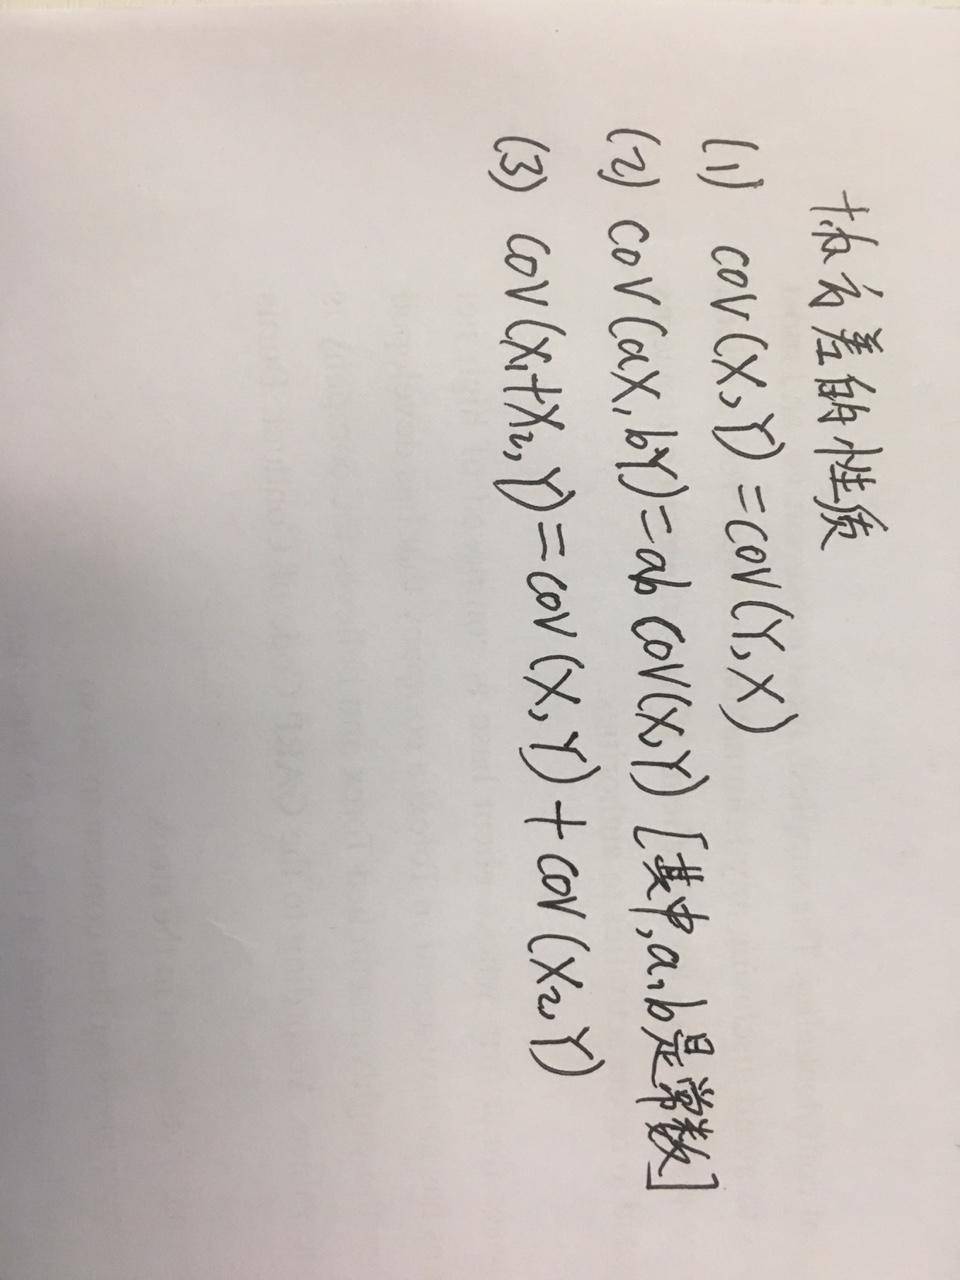 协方差的性质
(1) cov(X,Y)=cov(Y,X)
(2) cov(aX,bY)=ab cov(X,Y) [其中,a,b是常数]
(3) cov(X₁+X₂,Y)=cov(X,Y)+cov(X₂,Y)